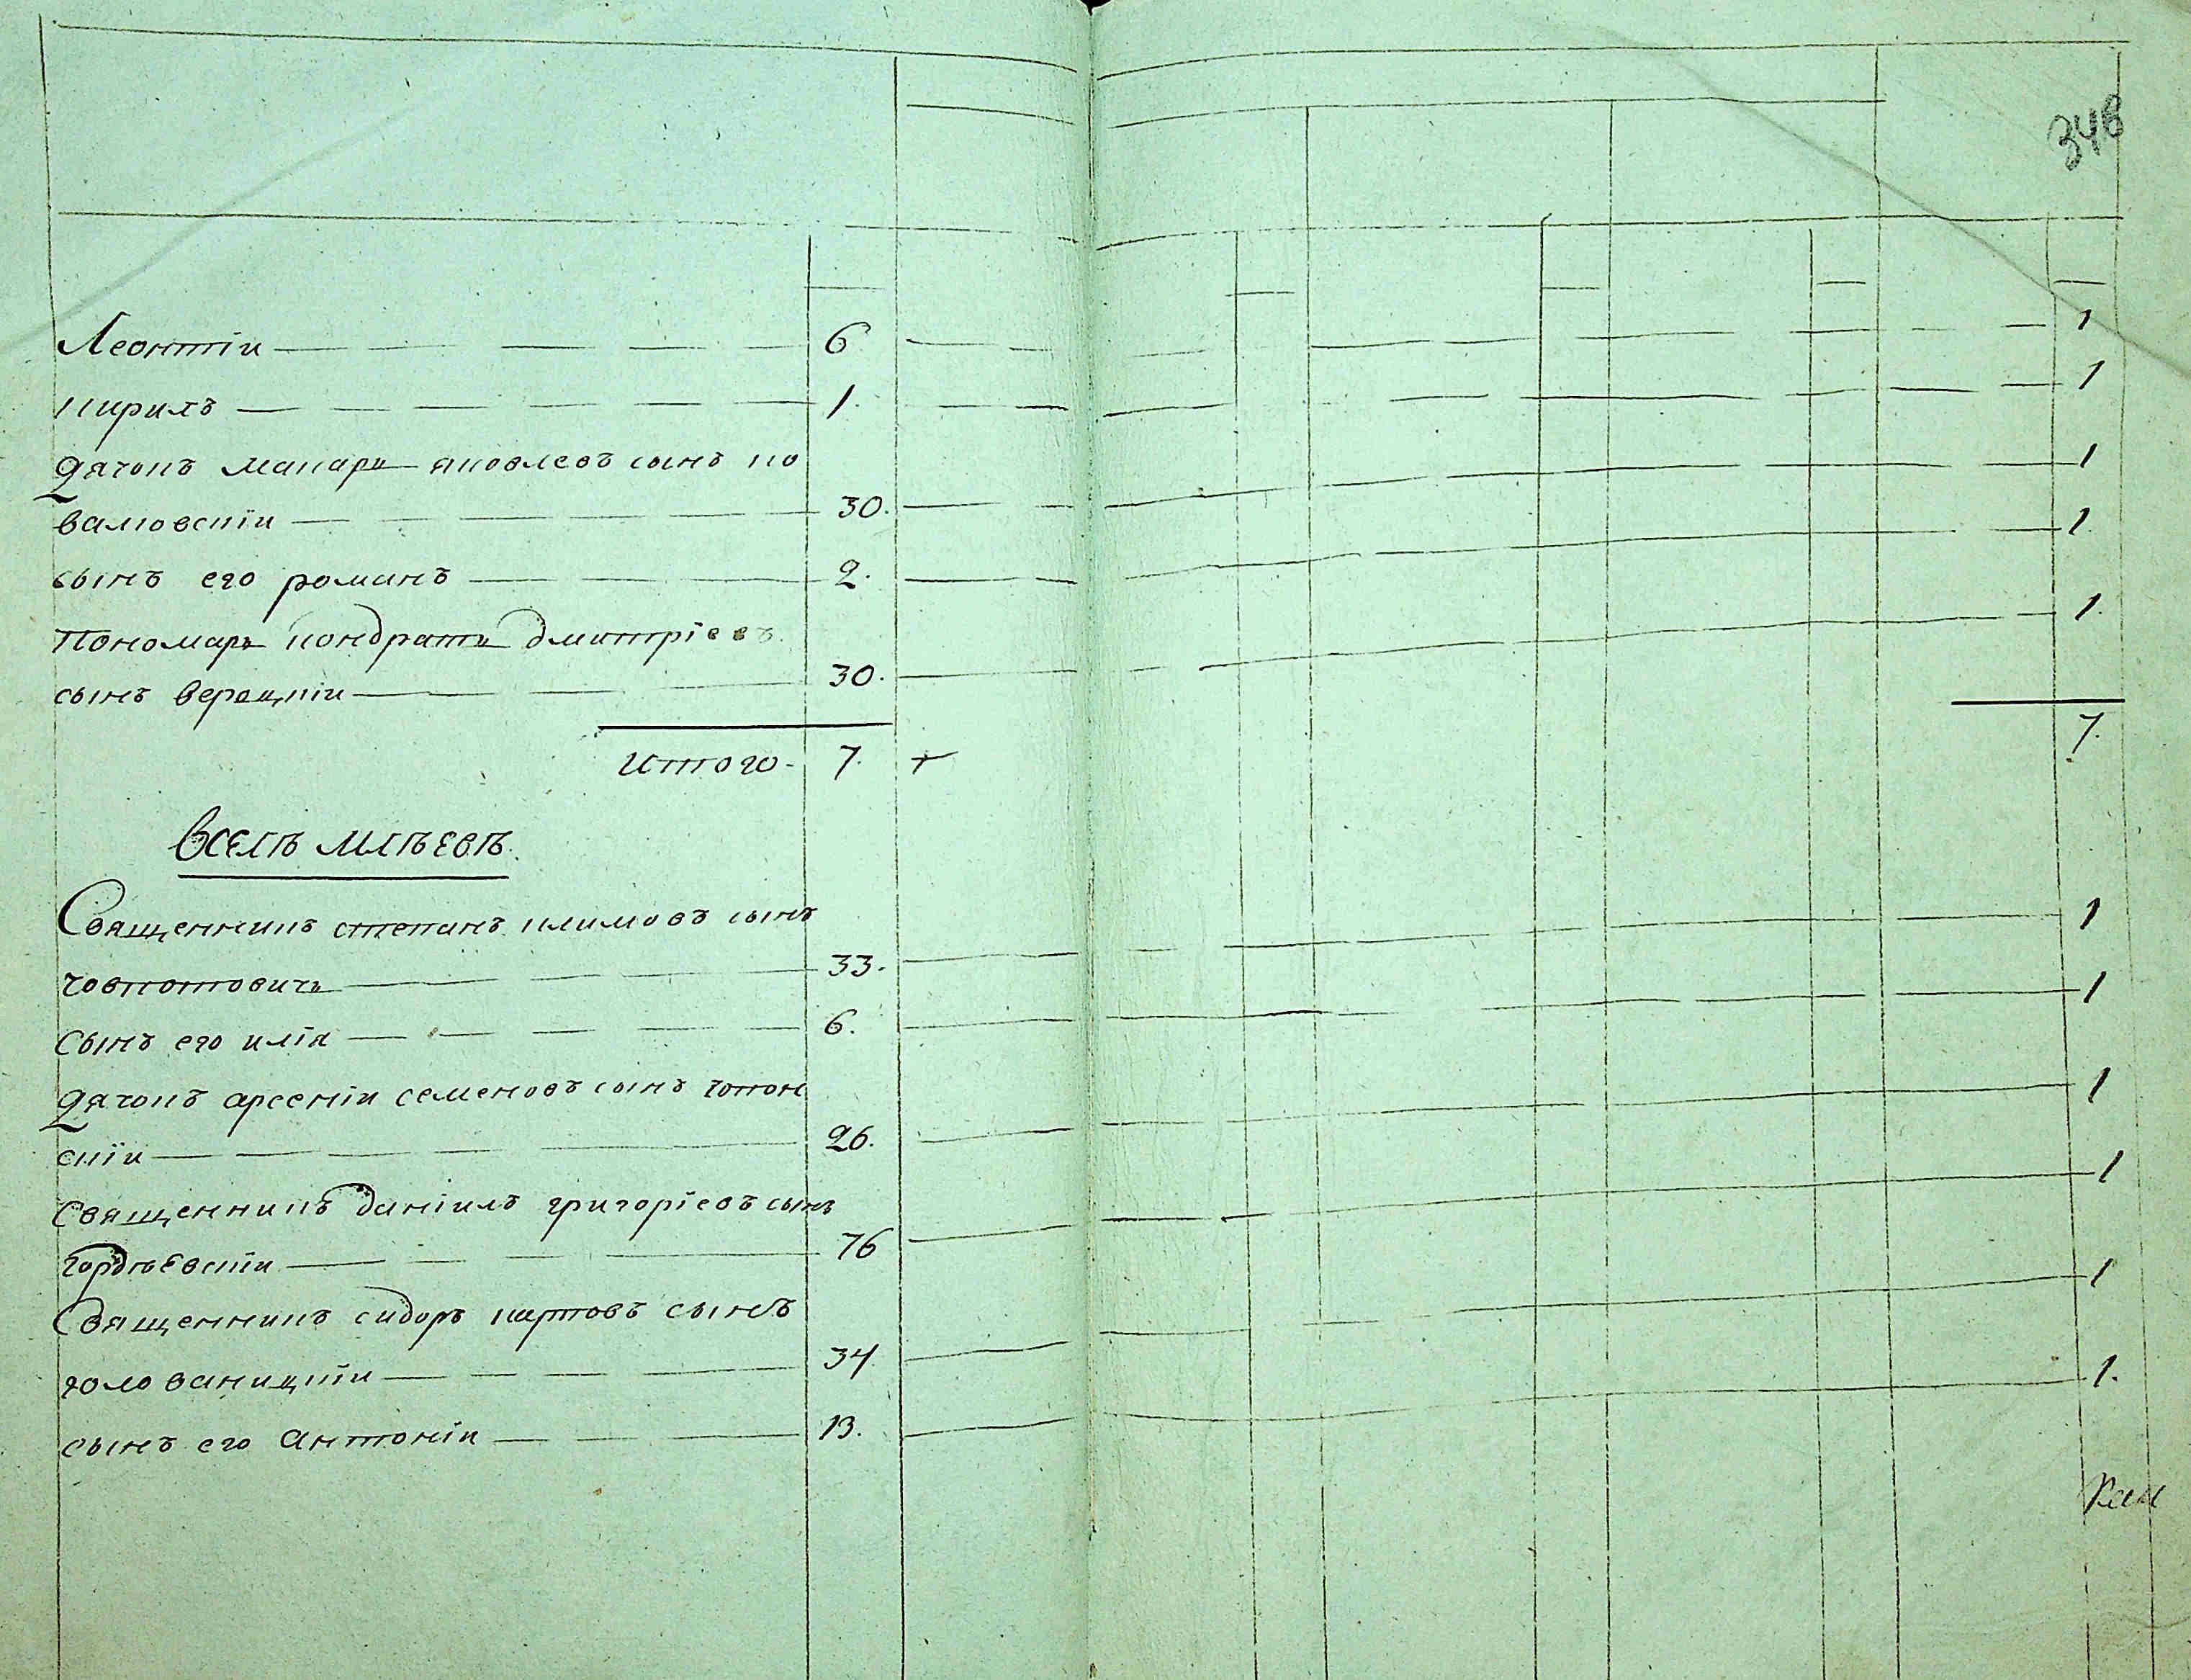 348
Леонтіи 6 1
кирилъ 1. 1
Дячокъ макаръ яковлевъ сынъ ко
валювскіи 30. 1
сынъ его романъ 2. 1
Пономаръ кондратъ дмитріевъ
сынъ верецкіи 30. 1.
Итого 7. 7.
Вселѣ Млѣевѣ.
Священникъ степанъ климовъ сынъ
човпотовичъ 33. 1
Сынъ его илія 6. 1
Дячокъ арсеніи семеновъ сынъ чопов
скіи 26. 1
Священникъ даніилъ григоріевъ сынъ
гордѣевскіи 76 1
Священникъ сидоръ карповъ сынъ
голованицкіи 34. 1
сынъ его Антоніи 13. 1.